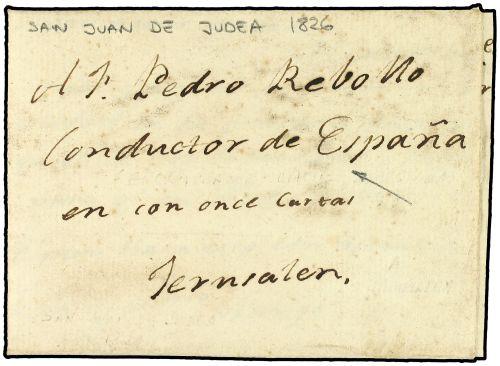 SAN JUAN DE JUDEA 1826
A F. Pedro Rebollo
Conductor de España
en con once Cartas
Jerusalen.